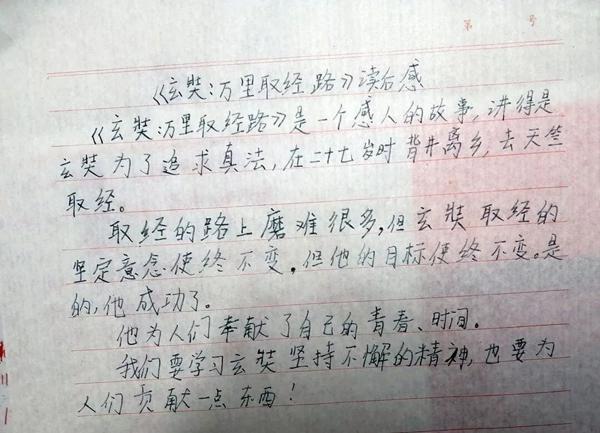 第 号
《玄奘:万里取经路》读后感
《玄奘:万里取经路》是一个感人的故事,讲得是
玄奘为了追求真法,在二十七岁时背井离乡,去天竺
取经。
取经的路上磨难很多,但玄奘取经的
坚定意念使终不变。但他的目标使终不变。是
的,他成功了。
他为人们奉献了自己的青春、时间。
我们要学习玄奘坚持不懈的精神,也要为
人们贡献一点东西!